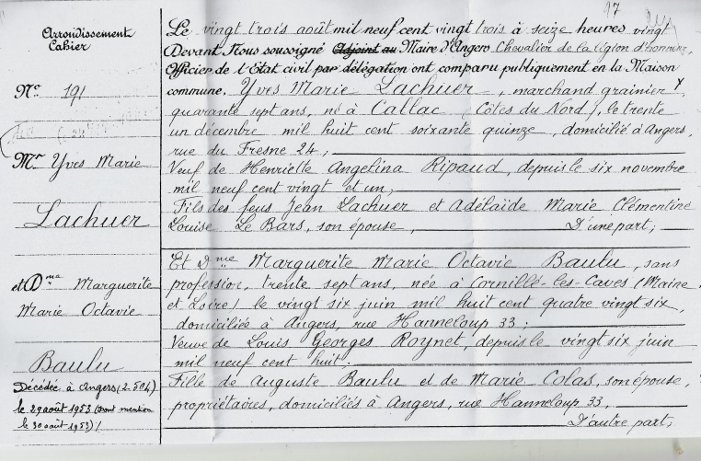 17
Arrondissement
Cahier
N° 191
Mr Yves Marie
Lachuer
et Dme Marguerite
Marie Octavie
Baulu
Décédée à Angers (2. 504)
le 29 août 1953 (dont mention
le 30 août 1953)/
Le vingt trois août mil neuf cent vingt trois à seize heures vingt
Devant Nous soussigné Adjoint au Maire d'Angers Chevalier de la Légion d'honneur,
Officier de l'Etat civil par délégation ont comparu publiquement en la Maison
commune. Yves Marie Lachuer, marchand grainier,
quarante sept ans, né à Callac (Côtes du Nord), le trente
un décembre mil huit cent soixante quinze, domicilié à Angers,
rue du Fresne 24,
Veuf de Henriette Angelina Ripaud, depuis le six novembre
mil neuf cent vingt et un,
Fils des feus Jean Lachuer et Adélaïde Marie Clémentine
Louise Le Bars, son épouse, D'une part;
Et Dme Marguerite Marie Octavie Baulu, sans
profession, trente sept ans, née à Cornillé-les-Caves (Maine
et Loire) le vingt six juin mil huit cent quatre vingt six,
domiciliée à Angers, rue Hanneloup 33;
Veuve de Louis Georges Roynet, depuis le vingt six juin
mil neuf cent huit;
Fille de Auguste Baulu et de Marie Colas, son épouse,
propriétaires, domiciliés à Angers, rue Hanneloup 33,
D'autre part;